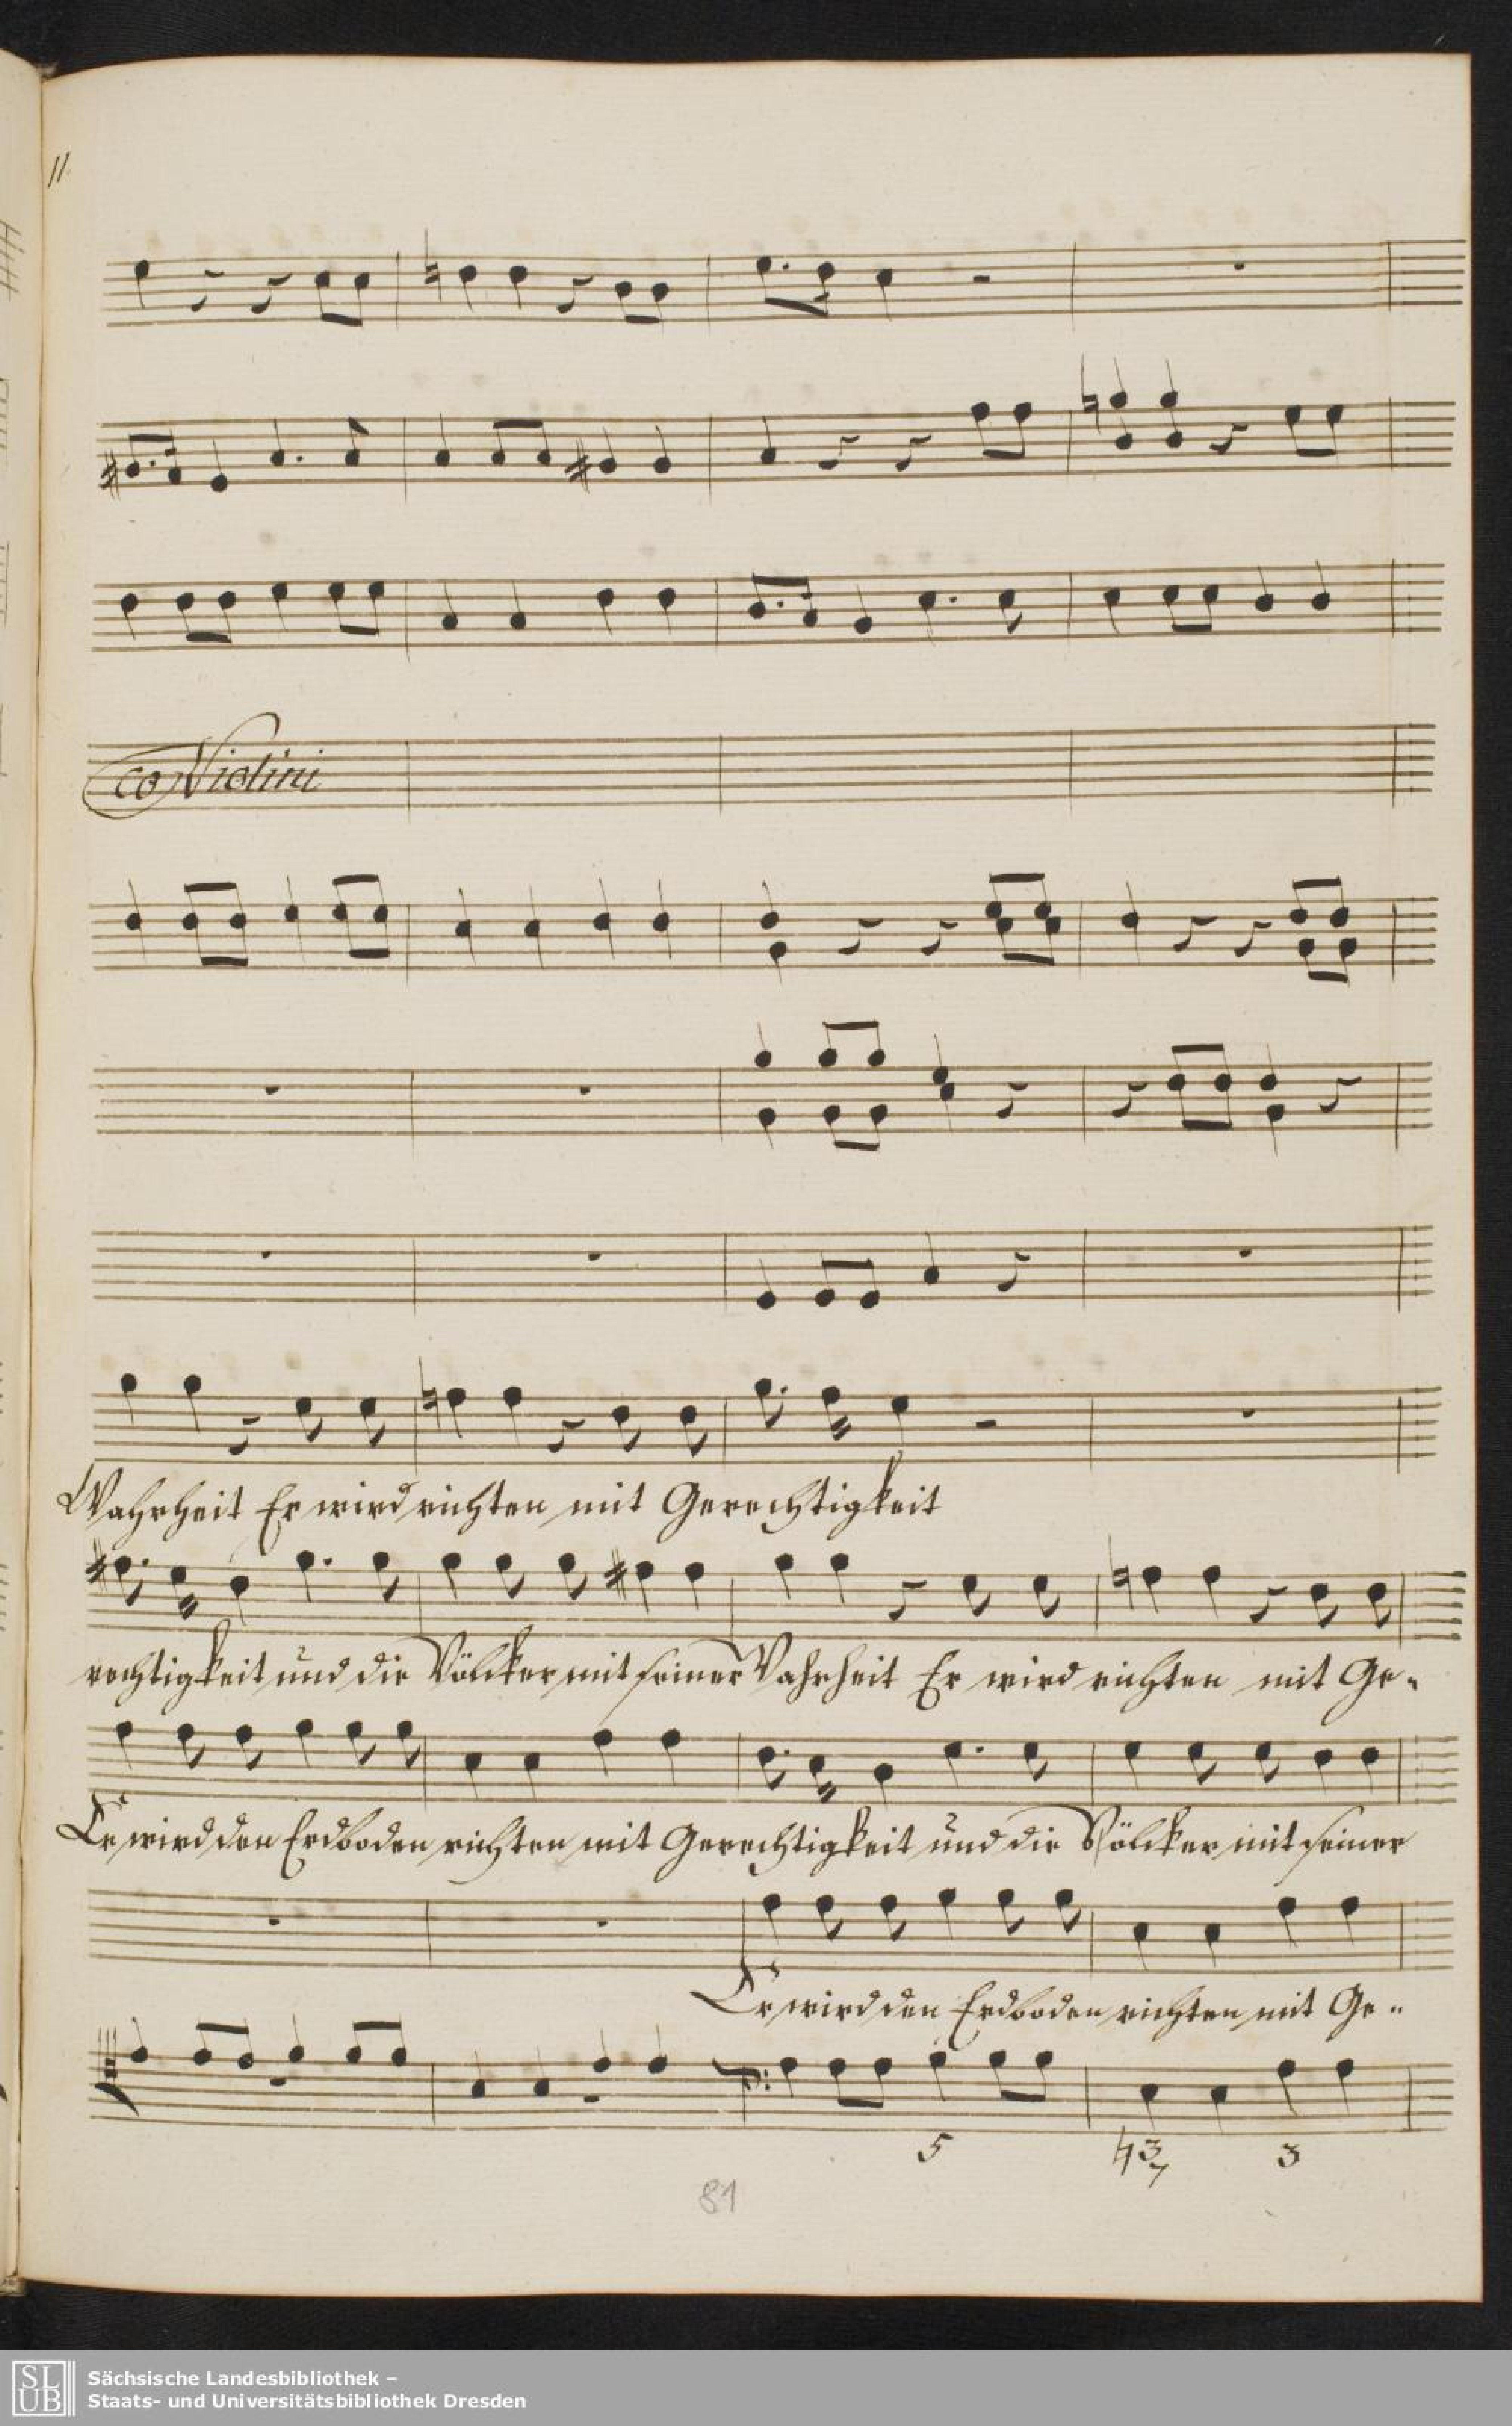 11.
co Violini
Wahrheit Er wird richten mit Gerechtigkeit
rechtigkeit und die Völcker mit seiner Wahrheit Er wird richten mit Ge-
Er wird den Erdboden richten mit Gerechtigkeit und die Völcker mit seiner
Er wird den Erdboden richten mit Ge-
5 ♮3 7 3
81
SLUB
Sächsische Landesbibliothek –
Staats- und Universitätsbibliothek Dresden